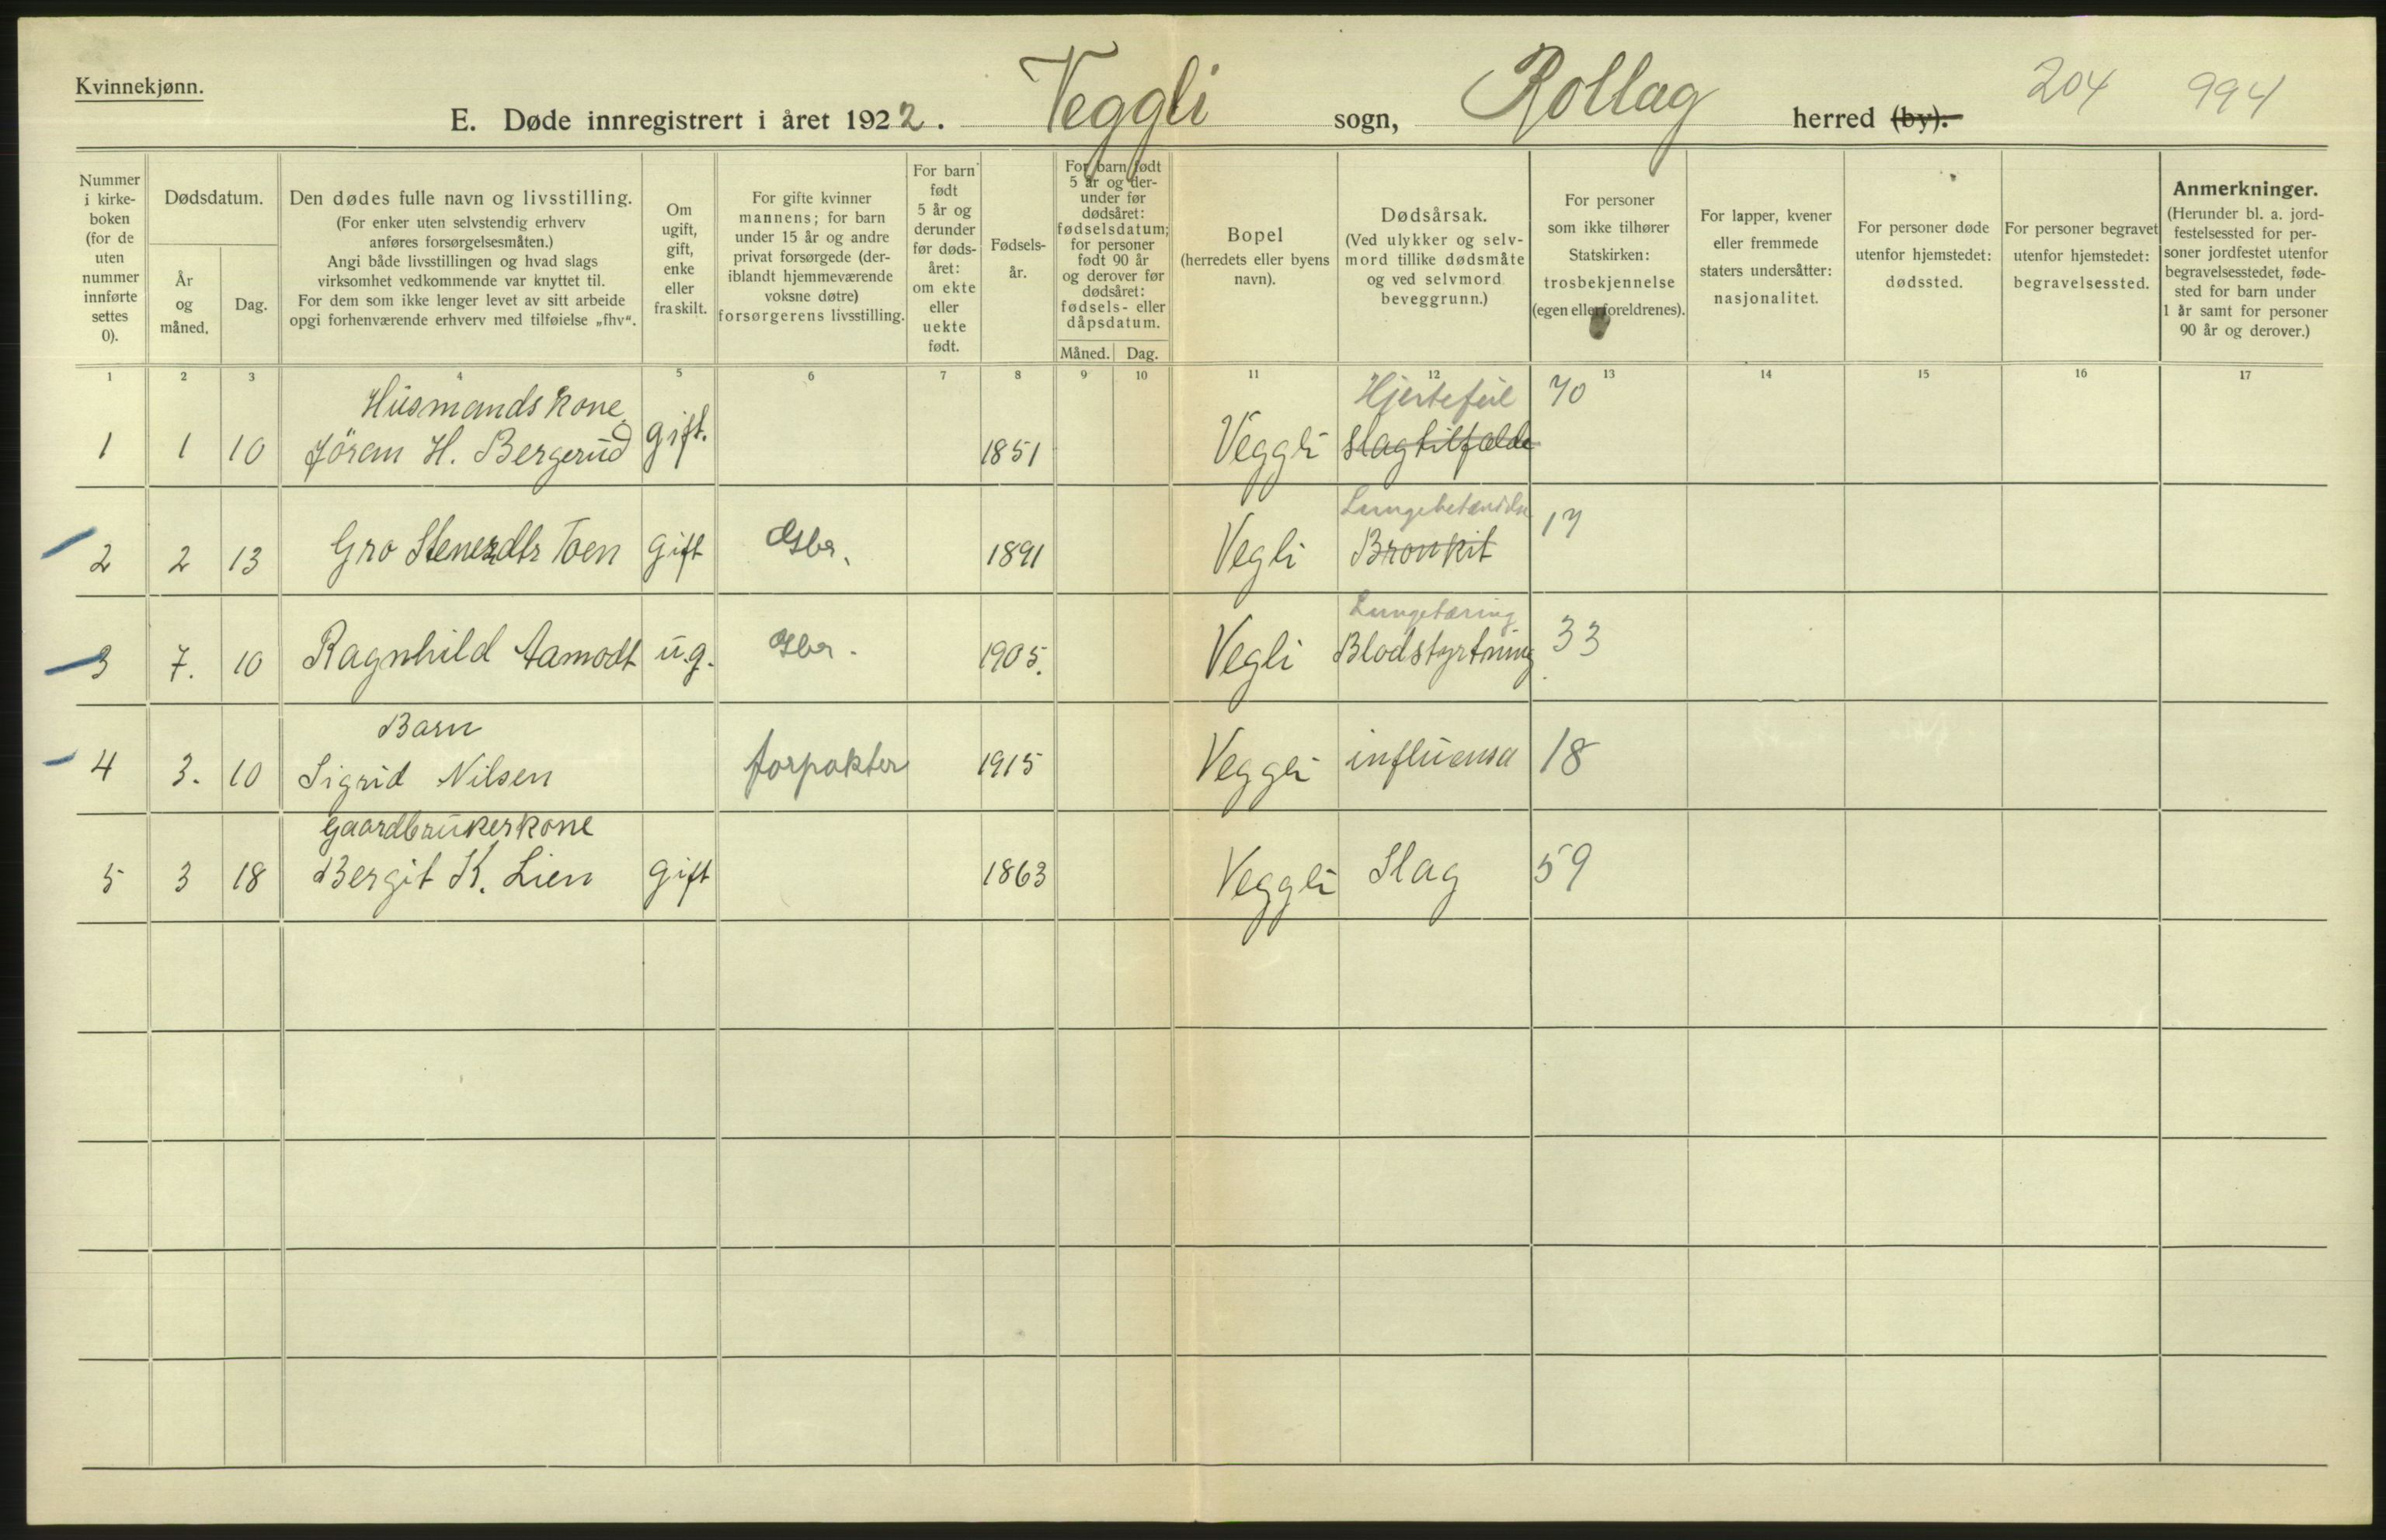 Kvinnekjønn.
E. Døde innregistrert i året 1922. Veggli sogn, Rollag herred (by). 204 994
Nummer i kirke-boken (for de uten nummer innførte settes 0).
Dødsdatum.
År og måned.
Dag.
Den dødes fulle navn og livsstilling.
(For enker uten selvstendig erhverv
anføres forsørgelsesmåten.)
Angi både livsstillingen og hvad slags
virksomhet vedkommende var knyttet til.
For dem som ikke lenger levet av sitt arbeide
opgi forhenværende erhverv med tilføielse „fhv“.
Om
ugift,
gift,
enke
eller
fraskilt.
For gifte kvinner
mannens; for barn
under 15 år og andre
privat forsørgede (der-
iblandt hjemmeværende
voksne døtre)
forsørgerens livsstilling.
For barn
født
5 år og
derunder
før døds-
året:
om ekte
eller
uekte
født.
Fødsels-
år.
For barn født
5 år og der-
under før
dødsåret:
fødselsdatum;
for personer
født 90 år
og derover før
dødsåret:
fødsels- eller
dåpsdatum.
Måned. Dag.
Bopel
(herredets eller byens
navn).
Dødsårsak.
(Ved ulykker og selv-
mord tillike dødsmåte
og ved selvmord
beveggrunn.)
For personer
som ikke tilhører
Statskirken:
trosbekjennelse
(egen eller foreldrenes).
For lapper, kvener
eller fremmede
staters undersåtter:
nasjonalitet.
For personer døde
utenfor hjemstedet:
dødssted.
For personer begravet
utenfor hjemstedet:
begravelsessted.
Anmerkninger.
(Herunder bl. a. jord-
festelsessted for per-
soner jordfestet utenfor
begravelsesstedet, føde-
sted for barn under
1 år samt for personer
90 år og derover.)
1 2 3 4 5 6 7 8 9 10 11 12 13 14 15 16 17
Husmandskone Hjertefeil 70
1 1 10 Jöran H. Bergerud gift. 1851 Veggli slagtilfælde
Lungebetændelse 17
2 2 13 Gro Stenersdtr Toen gift Gbr. 1891 Vegli Bronkit
Lungetæring 33
3 7. 10 Ragnhild Aamodt u.g. Gbr. 1905. Vegli Blodstyrtning
Barn
4 3. 10 Sigrid Nilsen forpakter 1915 Veggli influensa 18
Gaardbrukerkone
5 3 18 Bergit K. Lien gift 1863 Veggli Slag 59